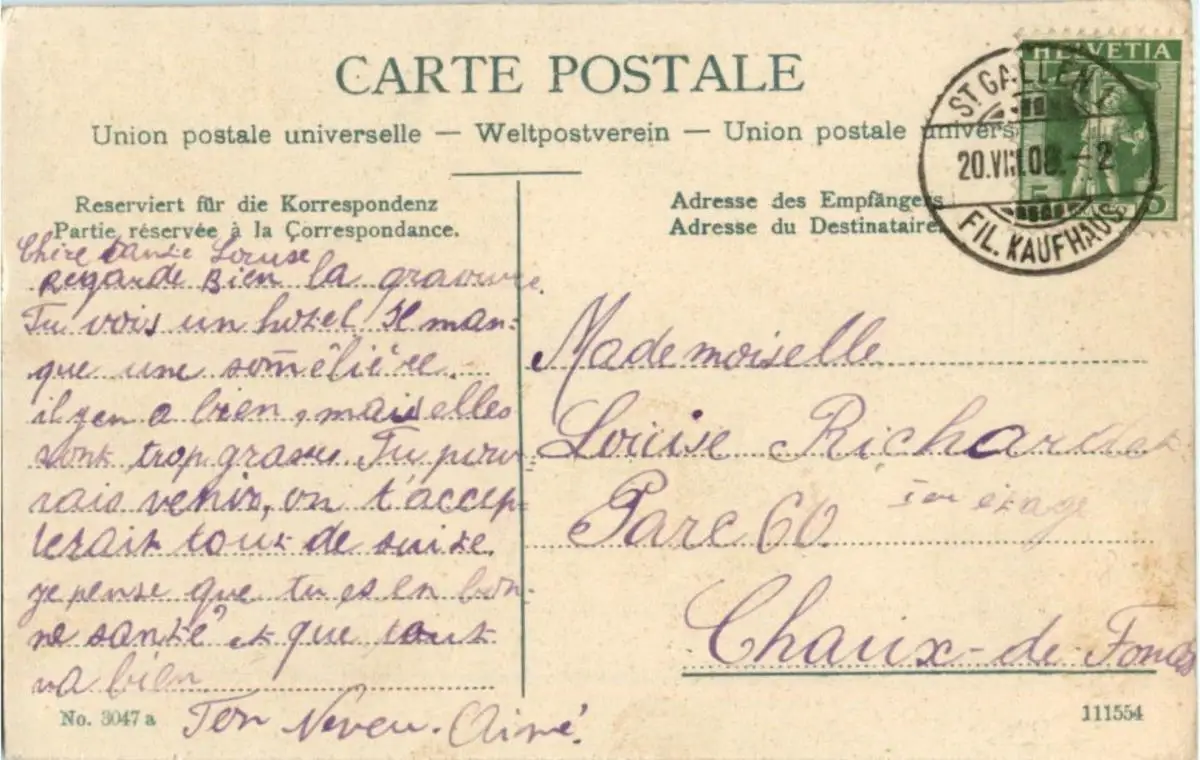 CARTE POSTALE
Union postale universelle — Weltpostverein — Union postale univers
HELVETIA
5 5
ST GALLEN 1
20.VIII.08.–2
FIL. KAUFHAUS
Reserviert für die Korrespondenz
Partie réservée à la Correspondance.
Chère tante Louise
Regarde Bien la gravure.
Tu vois un hotel Il man-
que une som̄êlière.
il y en a bien, mais elles
sont trop grasses Tu pour-
rais venir, on t'accep-
terait tout de suite.
je pense que tu es en bon-
ne santé et que tout
va bien
Ton Neveu. Aimé.
No. 3047 a
Adresse des Empfängers
Adresse du Destinataire.
Mademoiselle
Louise Richardet
1er étage
Parc 60.
Chaux-de Fonds
111554